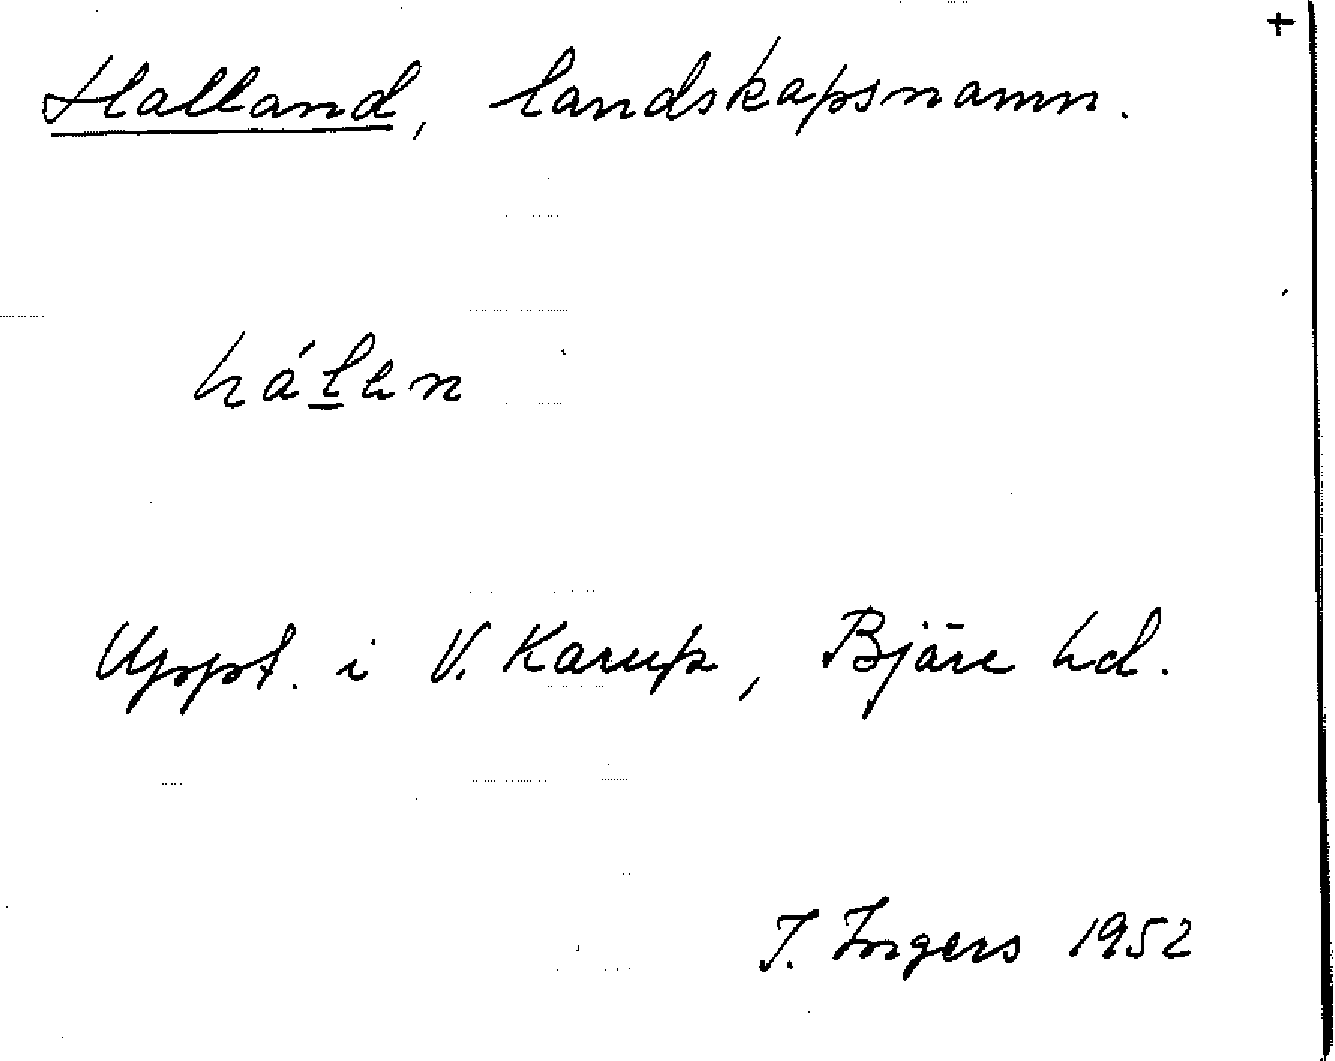 +
Halland, landskapsnamn.
hálen
Uppt. i V. Karup, Bjäre hd.
I. Ingers 1952